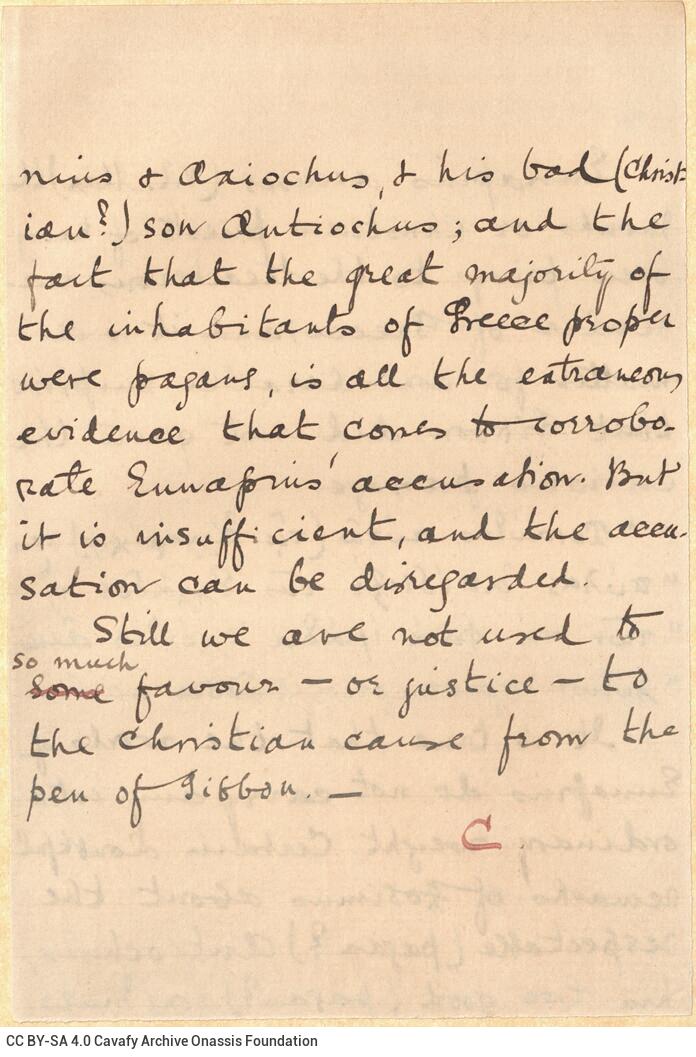 nius & Axiochus, & his bad (Christ=
ian?) son Antiochus; and the
fact that the great majority of
the inhabitants of Greece proper
were pagans, is all the extraneous
evidence that comes to corrobo-
rate Eunapius' accusation. But
it is insufficient, and the accu-
sation can be disregarded.
Still we are not used to
so much
Some favour — or justice — to
the Christian cause from the
pen of Gibbon. —
C
CC BY-SA 4.0 Cavafy Archive Onassis Foundation